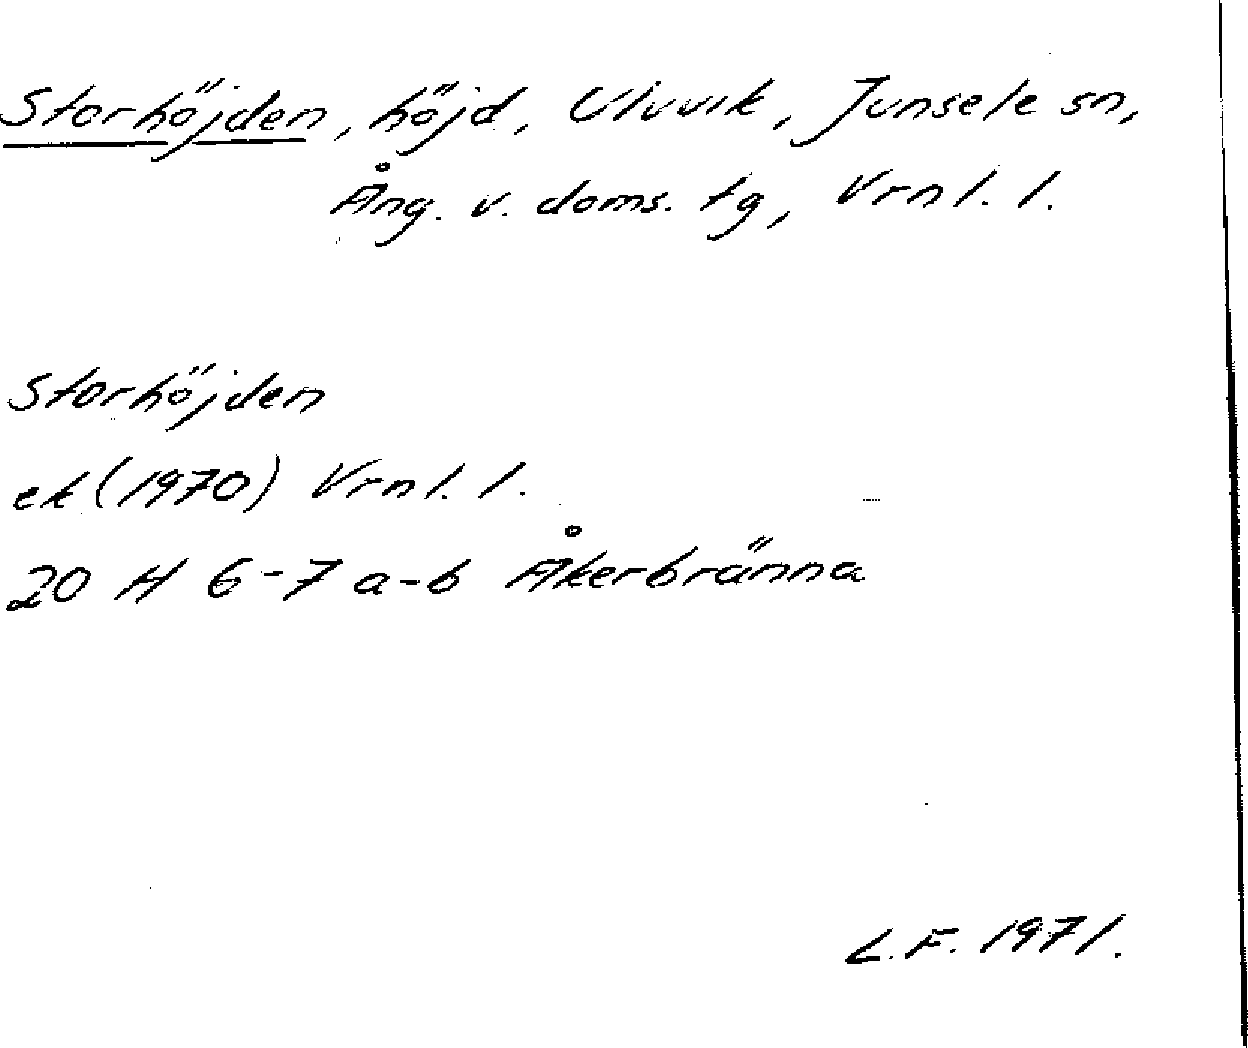 Storhöjden, höjd, Ulvvik, Junsele sn,
Ång. v. doms. tg, Vrnl. l.
Storhöjden
ek (1970) Vrnl. l.
20 H 6-7 a-b Åkerbränna
L.F. 1971.